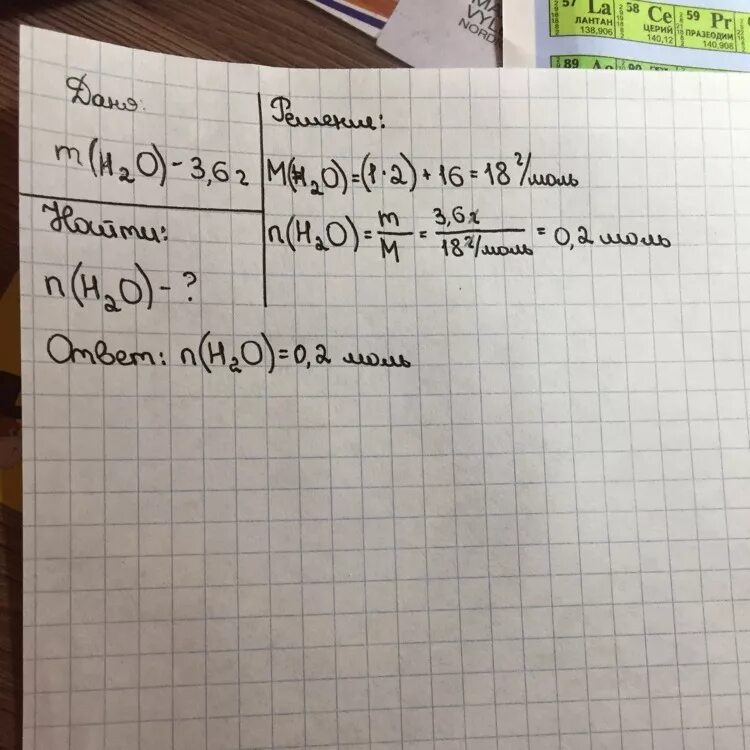 МА
VYL
NORD
57 La
ЛАНТАН
138,906
58 Ce
ЦЕРИЙ
140,12
59 Pr
ПРАЗЕОДИМ
140,908
89 Ac
90
Дано:
m(H₂O) - 3,6 г
Найти:
n(H₂O) - ?
Решение:
M(H₂O) = (1·2) + 16 = 18 г/моль
n(H₂O) = m/M = 3,6г/18г/моль = 0,2 моль
Ответ: n(H₂O) = 0,2 моль